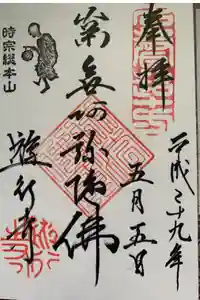 奉拝
平成二十九年
五月五日
南無阿弥陀佛
時宗総本山
遊行寺